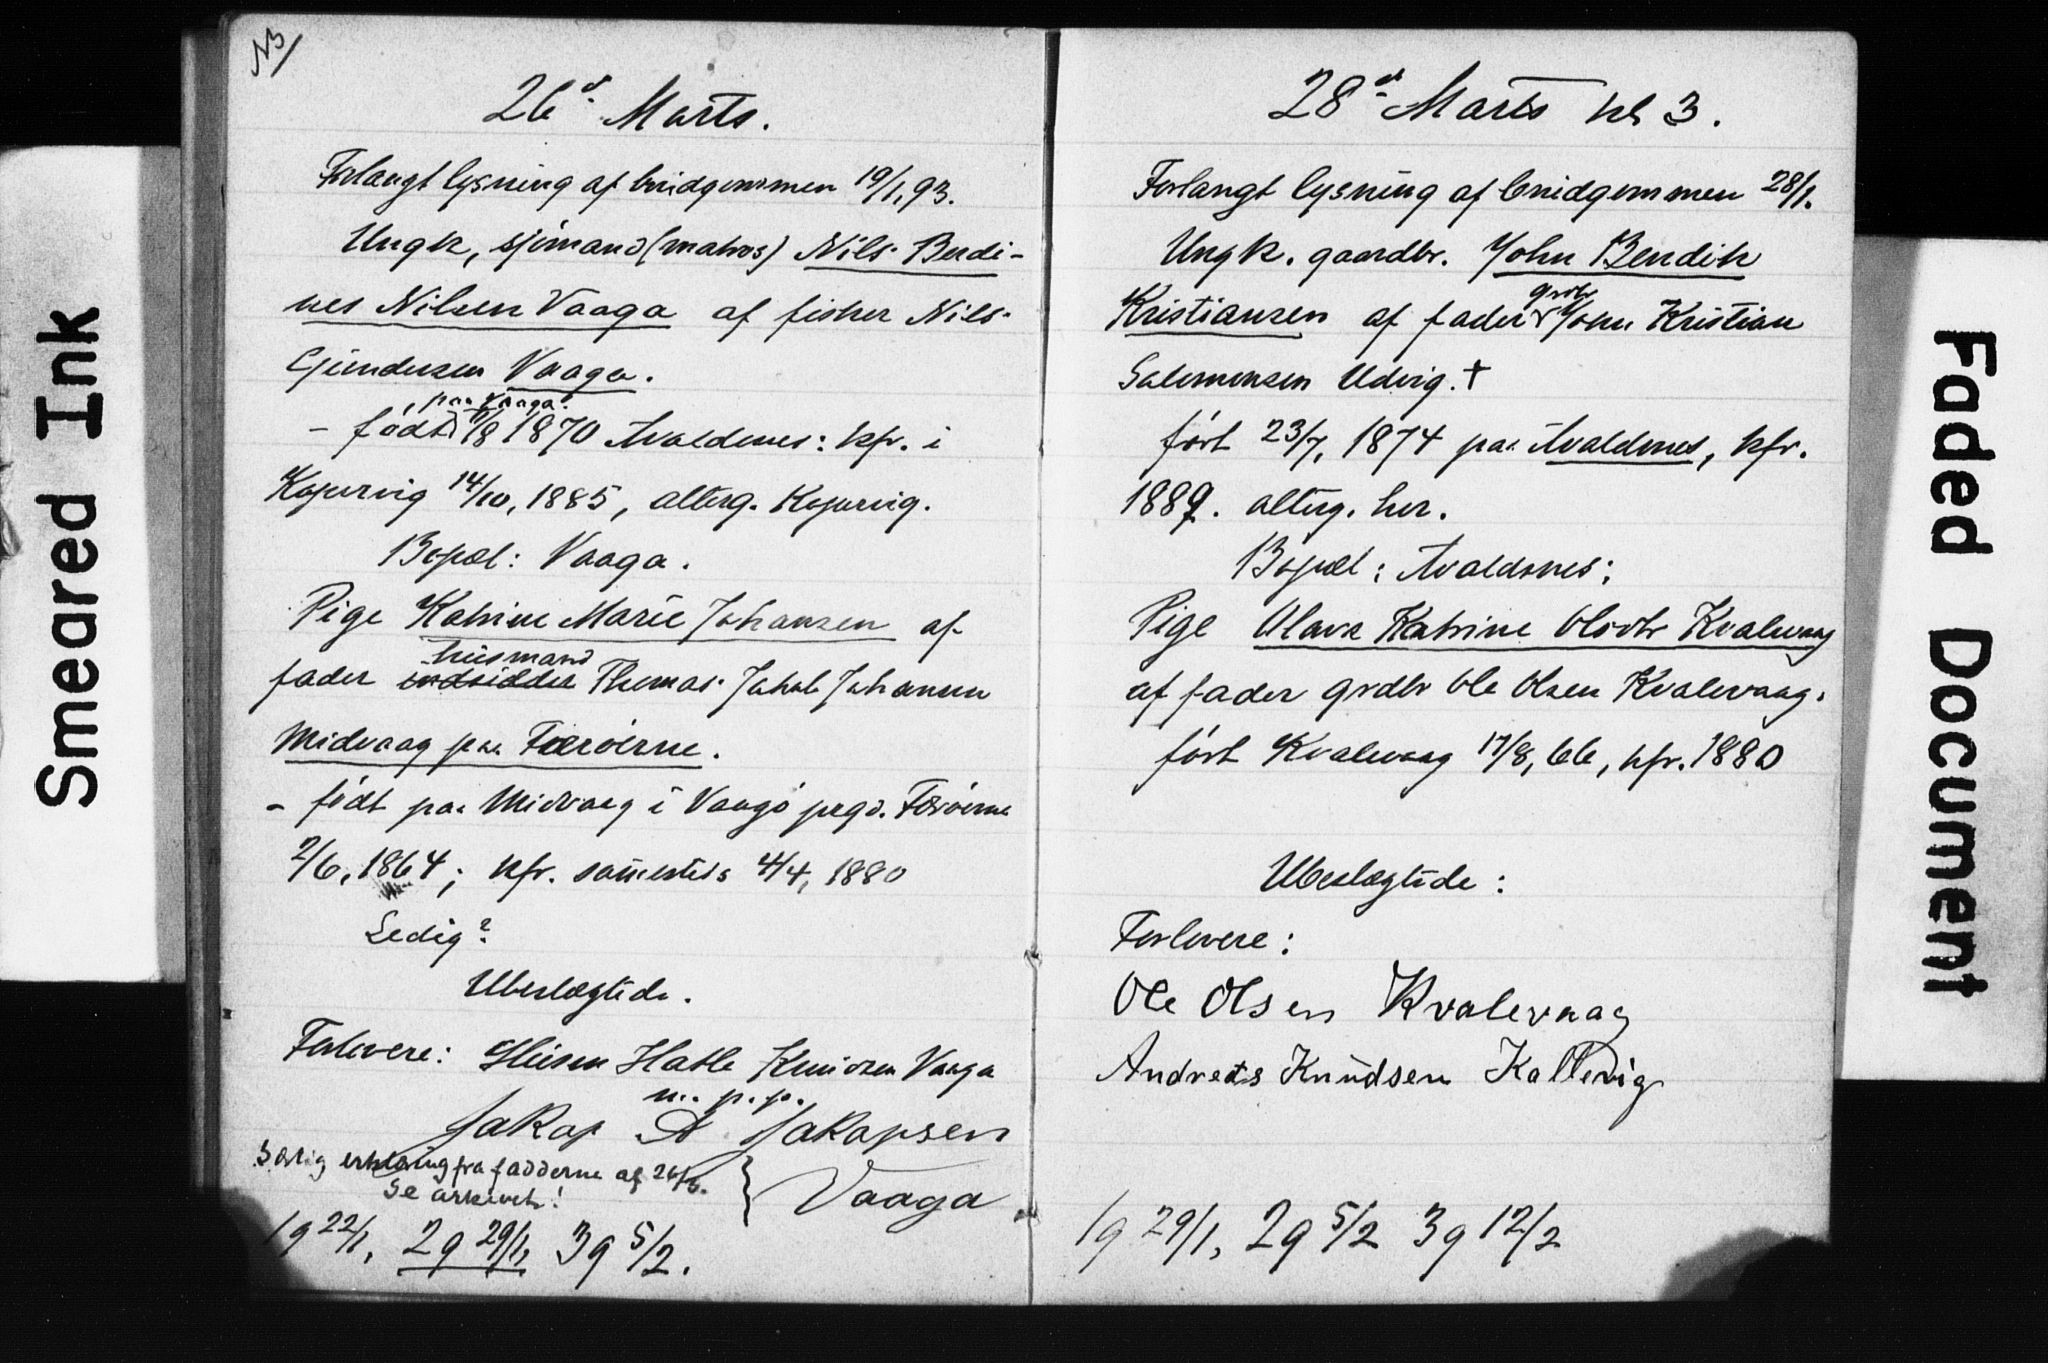 NB/
26d. Marts.
Forlangt lysning af brudgommen 19/1, 93.
Ungk, sjømand (matros) Nils Berdi-
nes Nilsen Vaaga af fisker Nils
Gjendesen Vaaga.
paa Vaaga.
- født /8 1870 Avaldsnes: kfr. i
Kopervig 14/10, 1885, alterg. Kopervig.
Bopæl: Vaaga.
Pige Katrine Marie Johansen af
husmand
fader indsidder Thomas Jakob Johansen
Midvaag paa Færøerne.
- født paa Midvaag i Vaagø prgd. Færøerne
2/6, 1864; kfr. samesteds 4/4, 1880
Ledig?
Ubeslægtede.
Forlovere: Hatle Knudsen Vaaga
m. p. p.
Jakop A Jakopsen
Særlig erklæring fra fadderne af 26/3.
Se arkivet!
} Vaaga
1g 22/1, 2g 29/1, 3g 5/2.
28d. Marts kl 3.
Forlangt lysning af brudgommen 28/1.
Ungk. gaardbr. John Bendik
grdbr
Kristiansen af fader John Kristian
Salomonsen Udvig. †
født 23/7, 1874 paa Avaldsnes, kfr.
1889. alterg. her.
Bopæl: Avaldsnes:
Pige Olava Katrine Olsdtr Kvalevaag
af fader grdbr Ole Olsen Kvalevaag.
født Kvalevaag 17/8, 66, kfr. 1880
Ubeslægtede:
Forlovere:
Ole Olsen Kvalevaag
Andreas Knudsen Kallevig
1g 29/1, 2g 5/2 3g 12/2
Smeared Ink
Faded Document